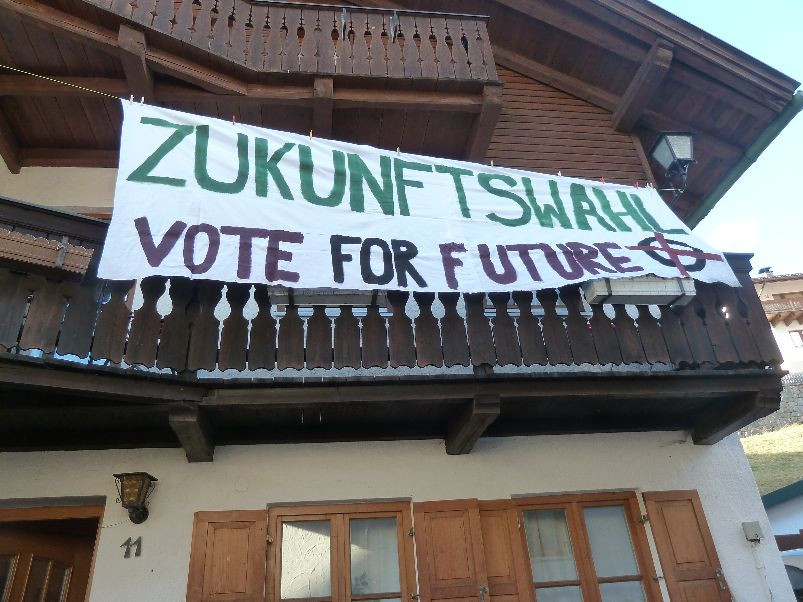 ZUKUNFTSWAHL
VOTE FOR FUTURE
11